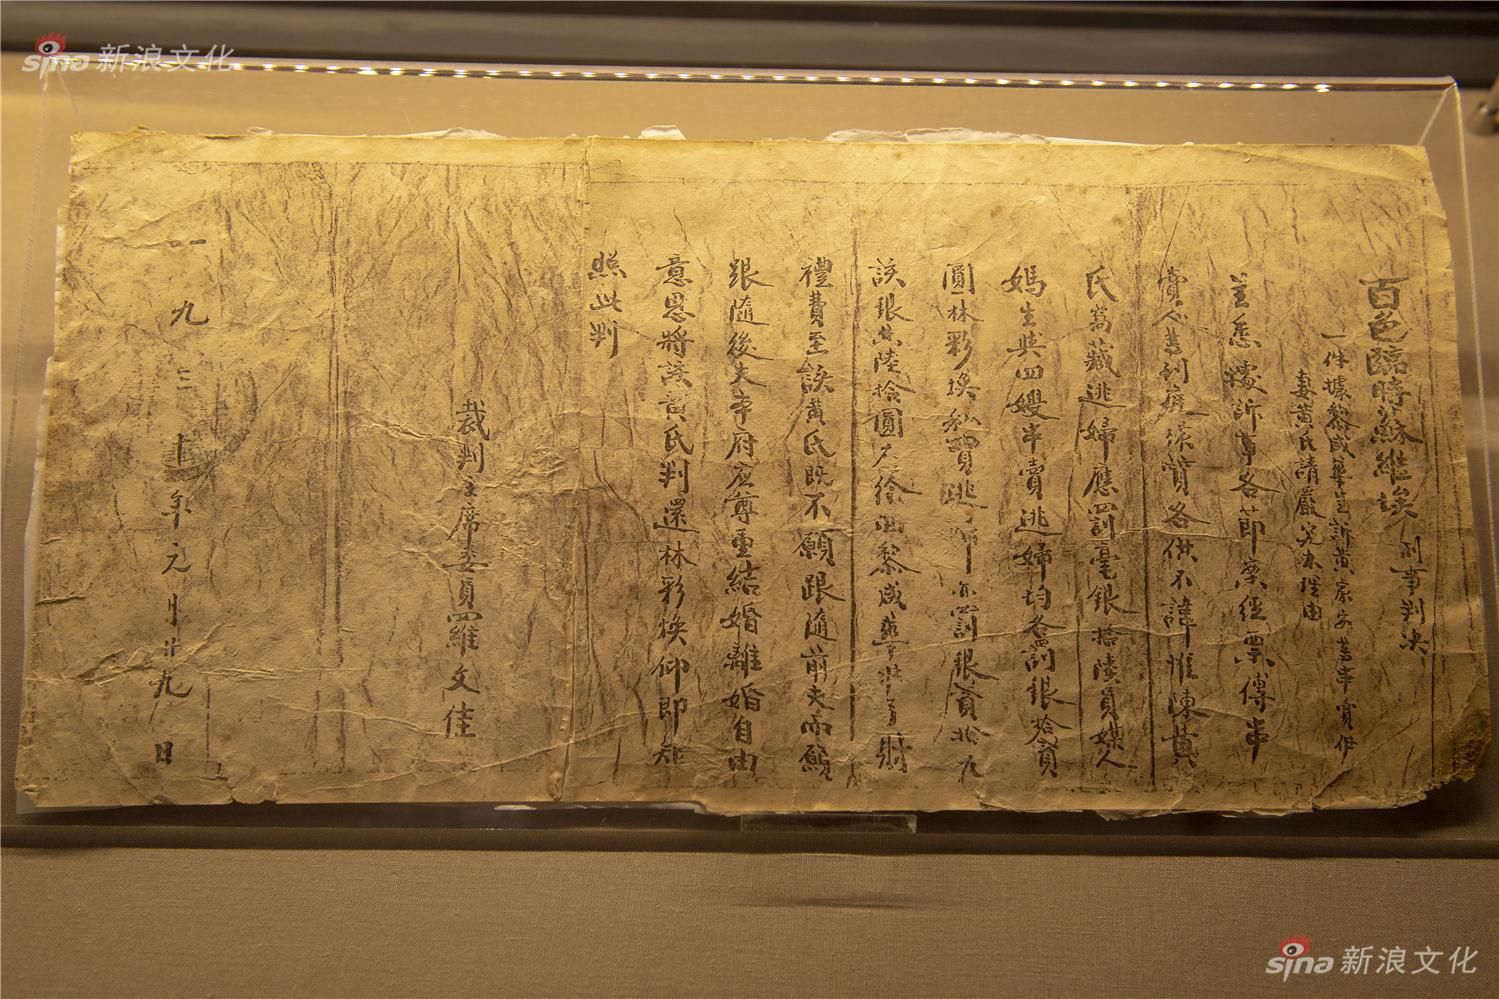 sina 新浪文化
百色臨時蘇維埃刑事判决
一件據黎咸華呈訴黄家安等串賣伊
妻黄氏請嚴究办理由
呈悉據訴事各節業經票傳串
賣人等到庭採質各供不諱惟陳黄
氏窩藏逃婦應罰毫銀拾陸員媒人
媽生與四嫂串賣逃婦均各罰銀拾
圓林彩煥私買逃婦亦罰銀貳拾九
該銀共陸拾圓黎咸華財
禮費至該黄氏既不願跟隨前夫而願
跟隨後夫本府应尊重結婚離婚自由
意思將該黄氏判還林彩焕仰即知
照此判
裁判主席委員羅文佳
一九三十年元月廿九日
sina 新浪文化